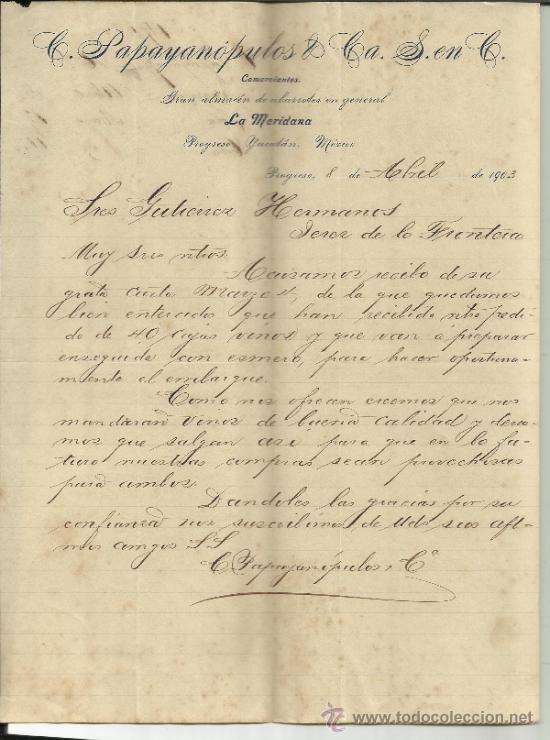 C. Papayanópulos & Ca. S. en C.
Comerciantes.
Gran almacén de abarrotes en general
La Meridana
Progreso, Yucatán, México
Progreso, 8 de Abril de 1903
Sres Gutierrez Hermanos
Jerez de la Frontera
Muy Sres ntros.
Acusamos recibo de su
grata carta Marzo 4, de la que quedamos
bien enterados que han recibido ntro pedi
do de 40 cajas vinos y que van á preparar
enseguida con esmero, para hacer oportuna-
mente el embarque.
Como nos ofrecen creemos que nos
mandarán vinos de buena calidad y desea
mos que salgan asi para que en lo fu-
turo nuestras compras sean provechosas
para ambos.
Dandoles las gracias por su
confianza nos suscribimos de Uds sus aft-
mos amgos SS
C Papayanópulos y Cª
todocoleccion
www.todocoleccion.net